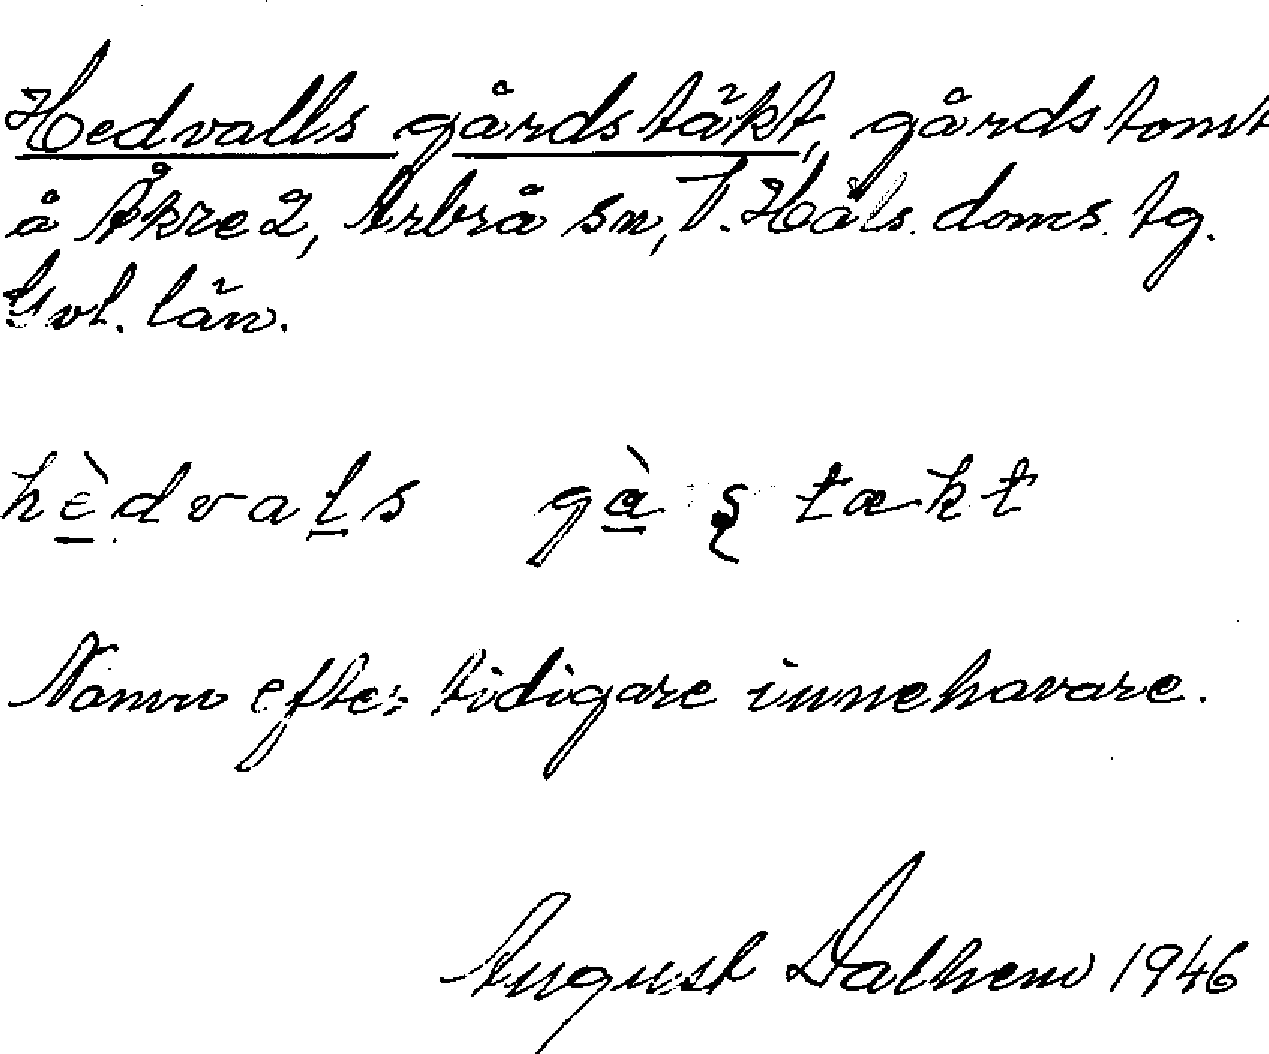 Hedvalls gårdstäkt, gårdstomt
å Åkre 2, Arbrå sn, V. Häls. doms. tg.
Gvl. län.
hὲdvaḻs gàʂtækt
Namn efter tidigare innehavare.
August Dalhem 1946